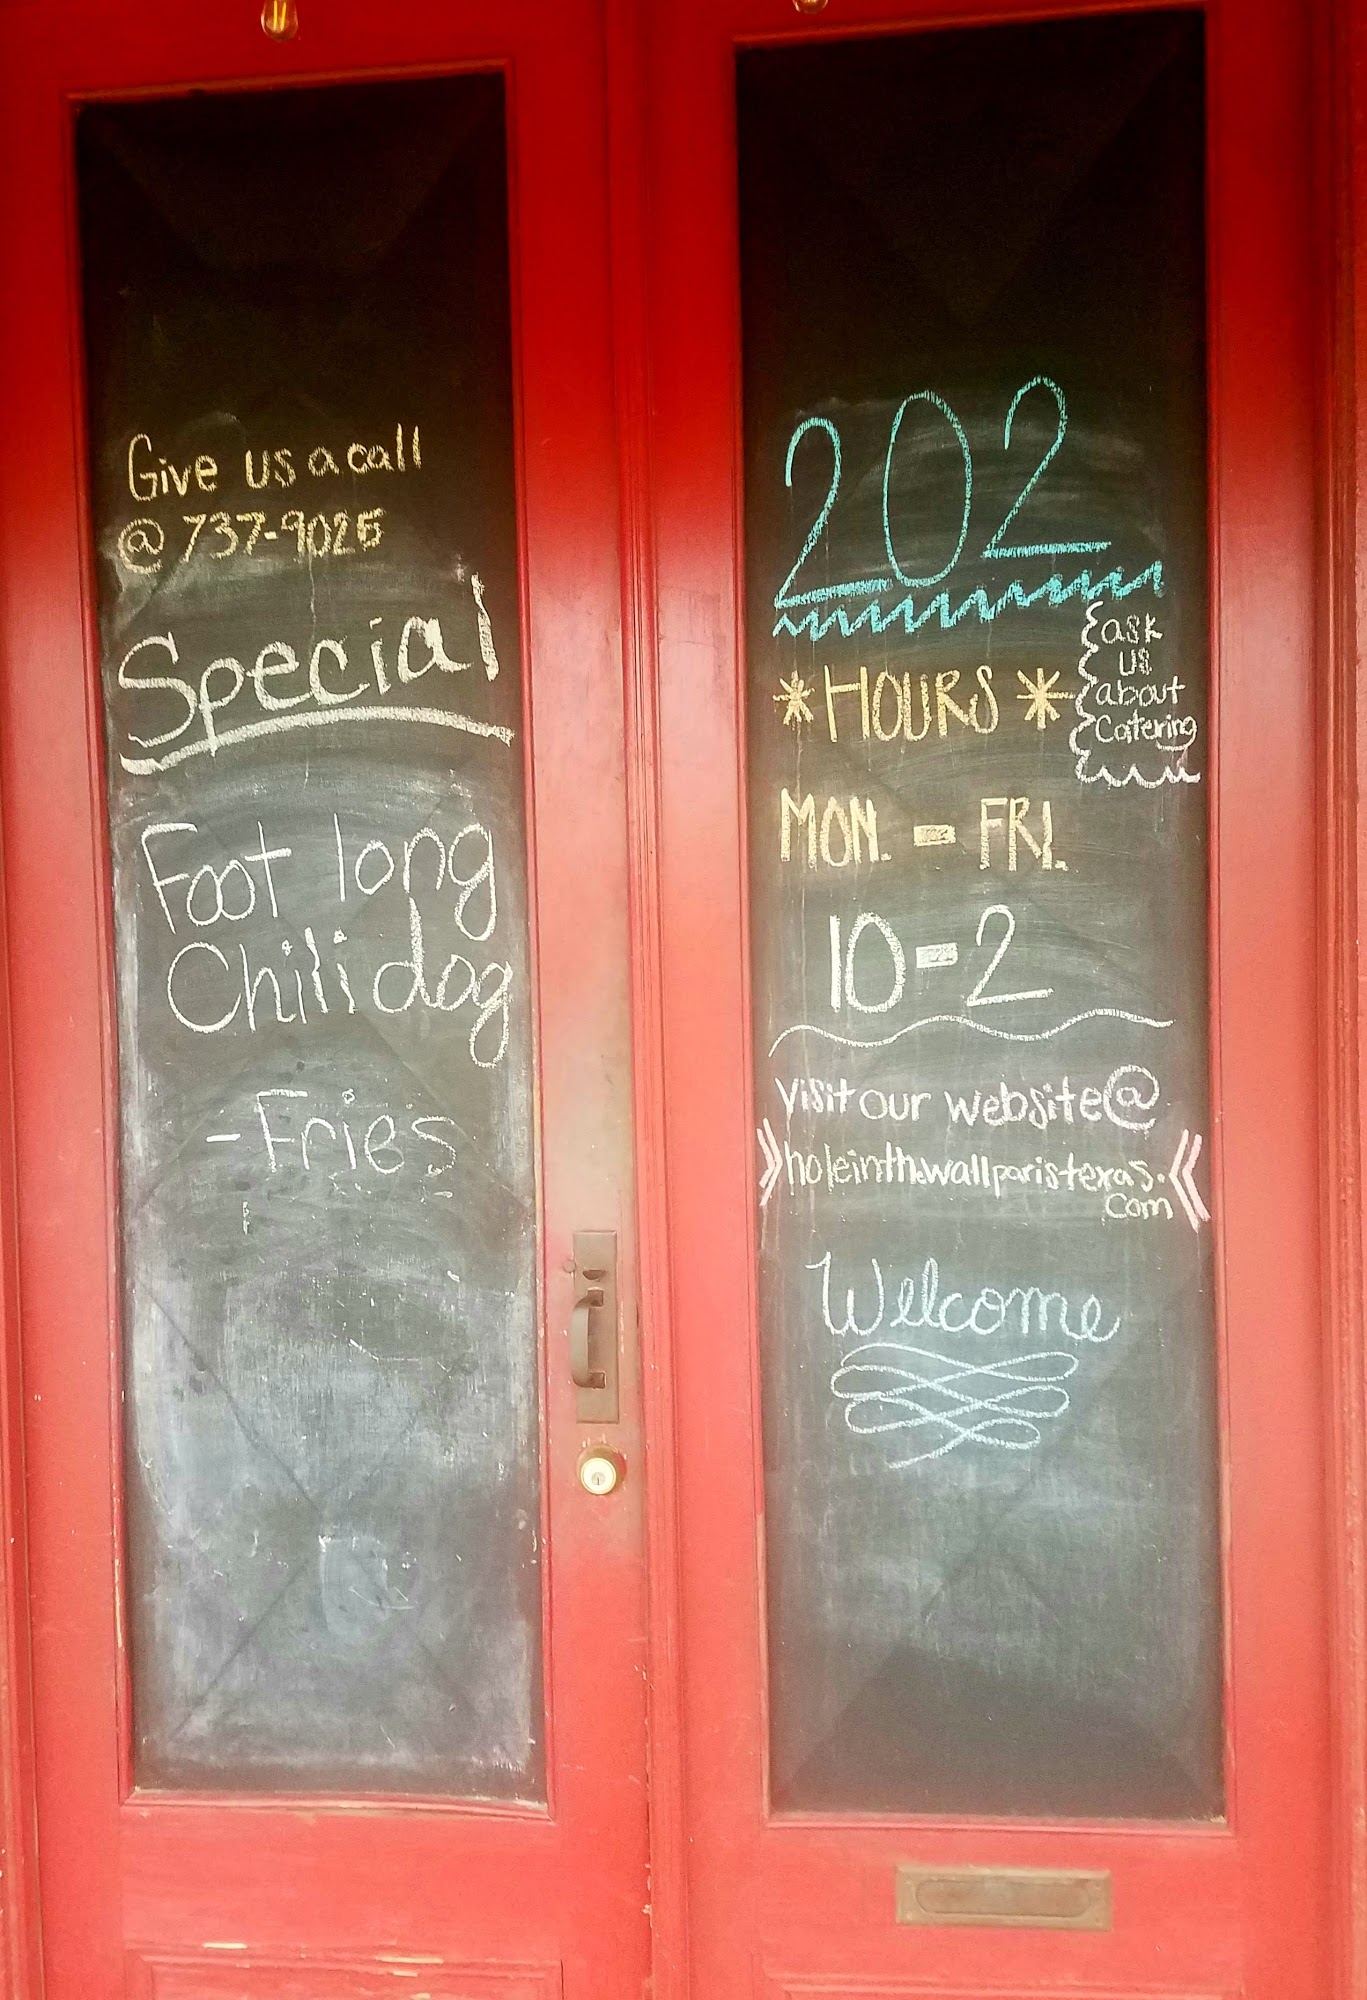 Give us a call
@ 737-9025
Special
Foot long
Chili dog
- Fries
202
*HOURS*
ask
us
about
Catering
MON. - FRI.
10-2
visit our website@
holeinthewallparistexas.
com
Welcome